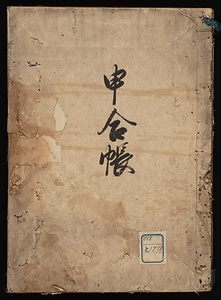 申合帳